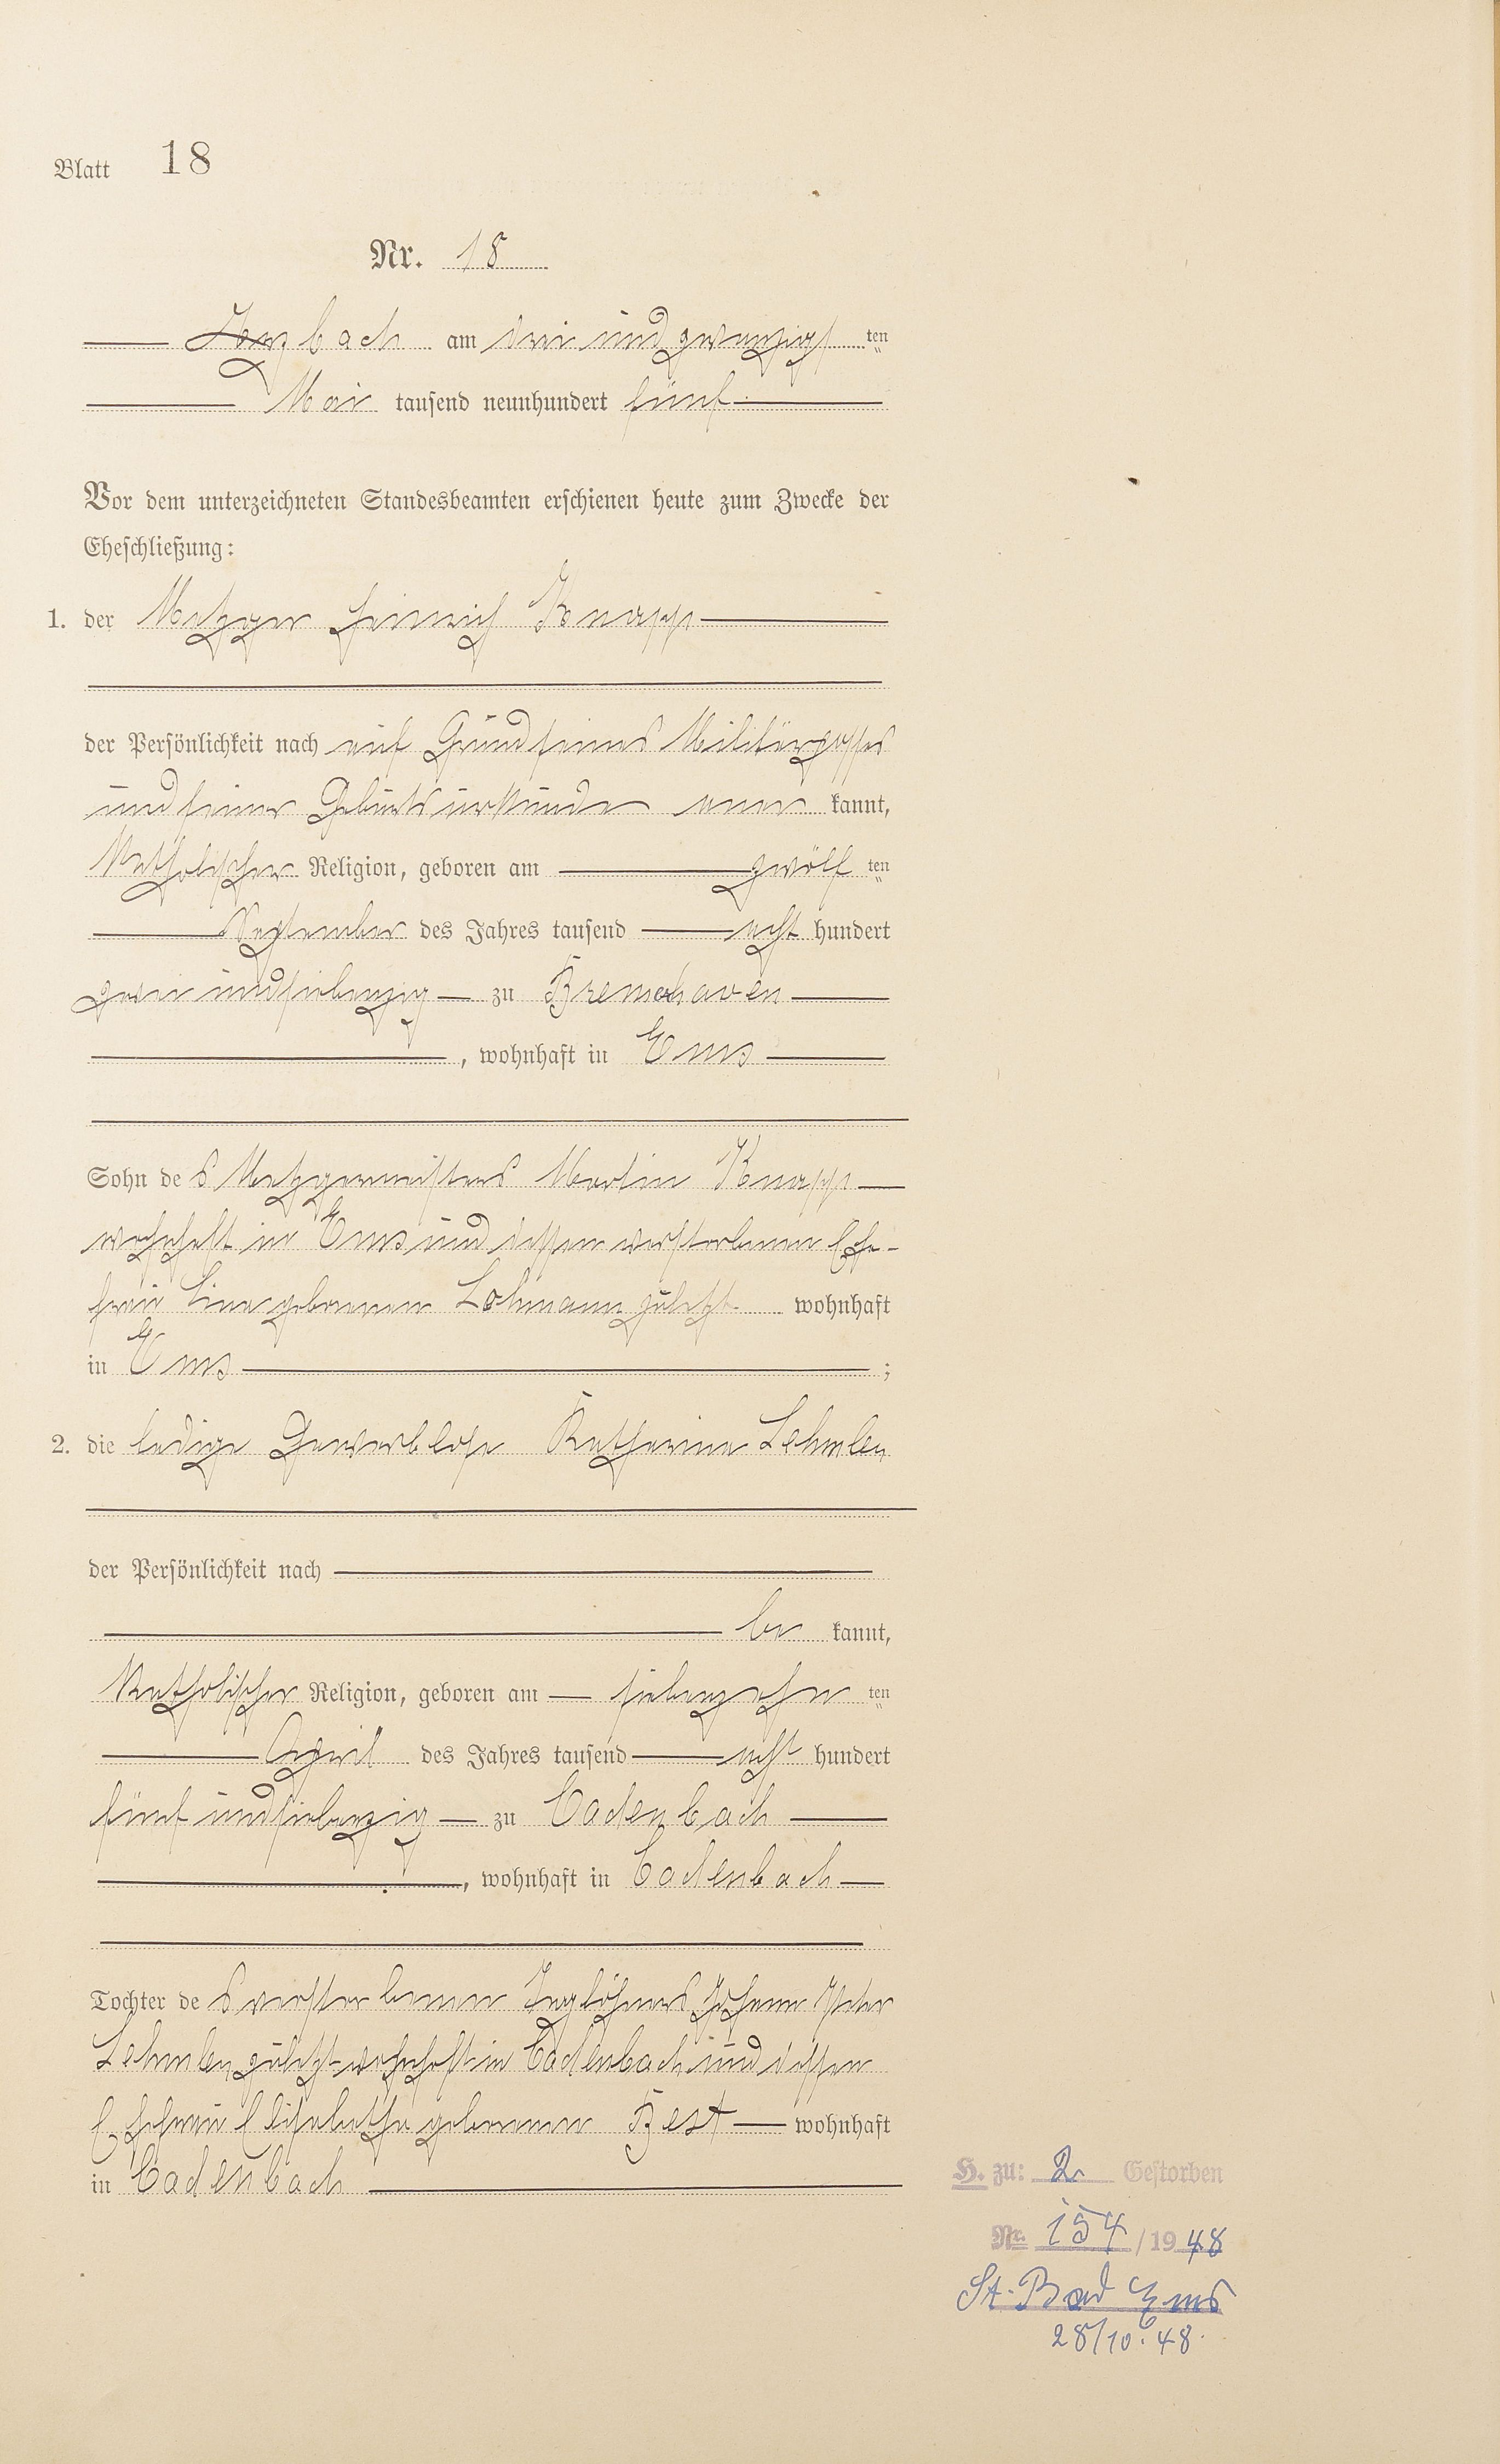 Blatt 18
Nr. 18
Arzbach am drei und zwanzigsten
Mai tausend neunhundert fünf
Vor dem unterzeichneten Standesbeamten erschienen heute zum Zwecke der
Eheschließung:
1. der Metzger Heinrich Knapp
der Persönlichkeit nach auf Grund seines Militärpasses
und seiner Geburtsurkunde aner kannt,
Katholischer Religion, geboren am zwölf ten
September des Jahres tausend acht hundert
zwei und siebenzig zu Bremerhaven
, wohnhaft in Ems
Sohn des Metzgermeisters Martin Knapp
wohnhaft in Ems und dessen verstorbenen Ehe-
frau Line geborenen Lohmann zuletzt wohnhaft
in Ems ;
2. die ledige Gewerblose Katharina Lehmler
der Persönlichkeit nach
be kannt,
Katholischer Religion, geboren am siebenzehn ten
April des Jahres tausend acht hundert
fünf und siebenzig zu Cadenbach
, wohnhaft in Cadenbach
Tochter des verstorbenen Taglöhners Johann Peter
Lehmler, zuletzt wohnhaft in Cadenbach und dessen
Ehefrau Elisabetha geborenen Best wohnhaft
in Cadenbach
H. zu: 2. Gestorben
Nr. 154 / 1948
St. Bad Ems
28/10.48.